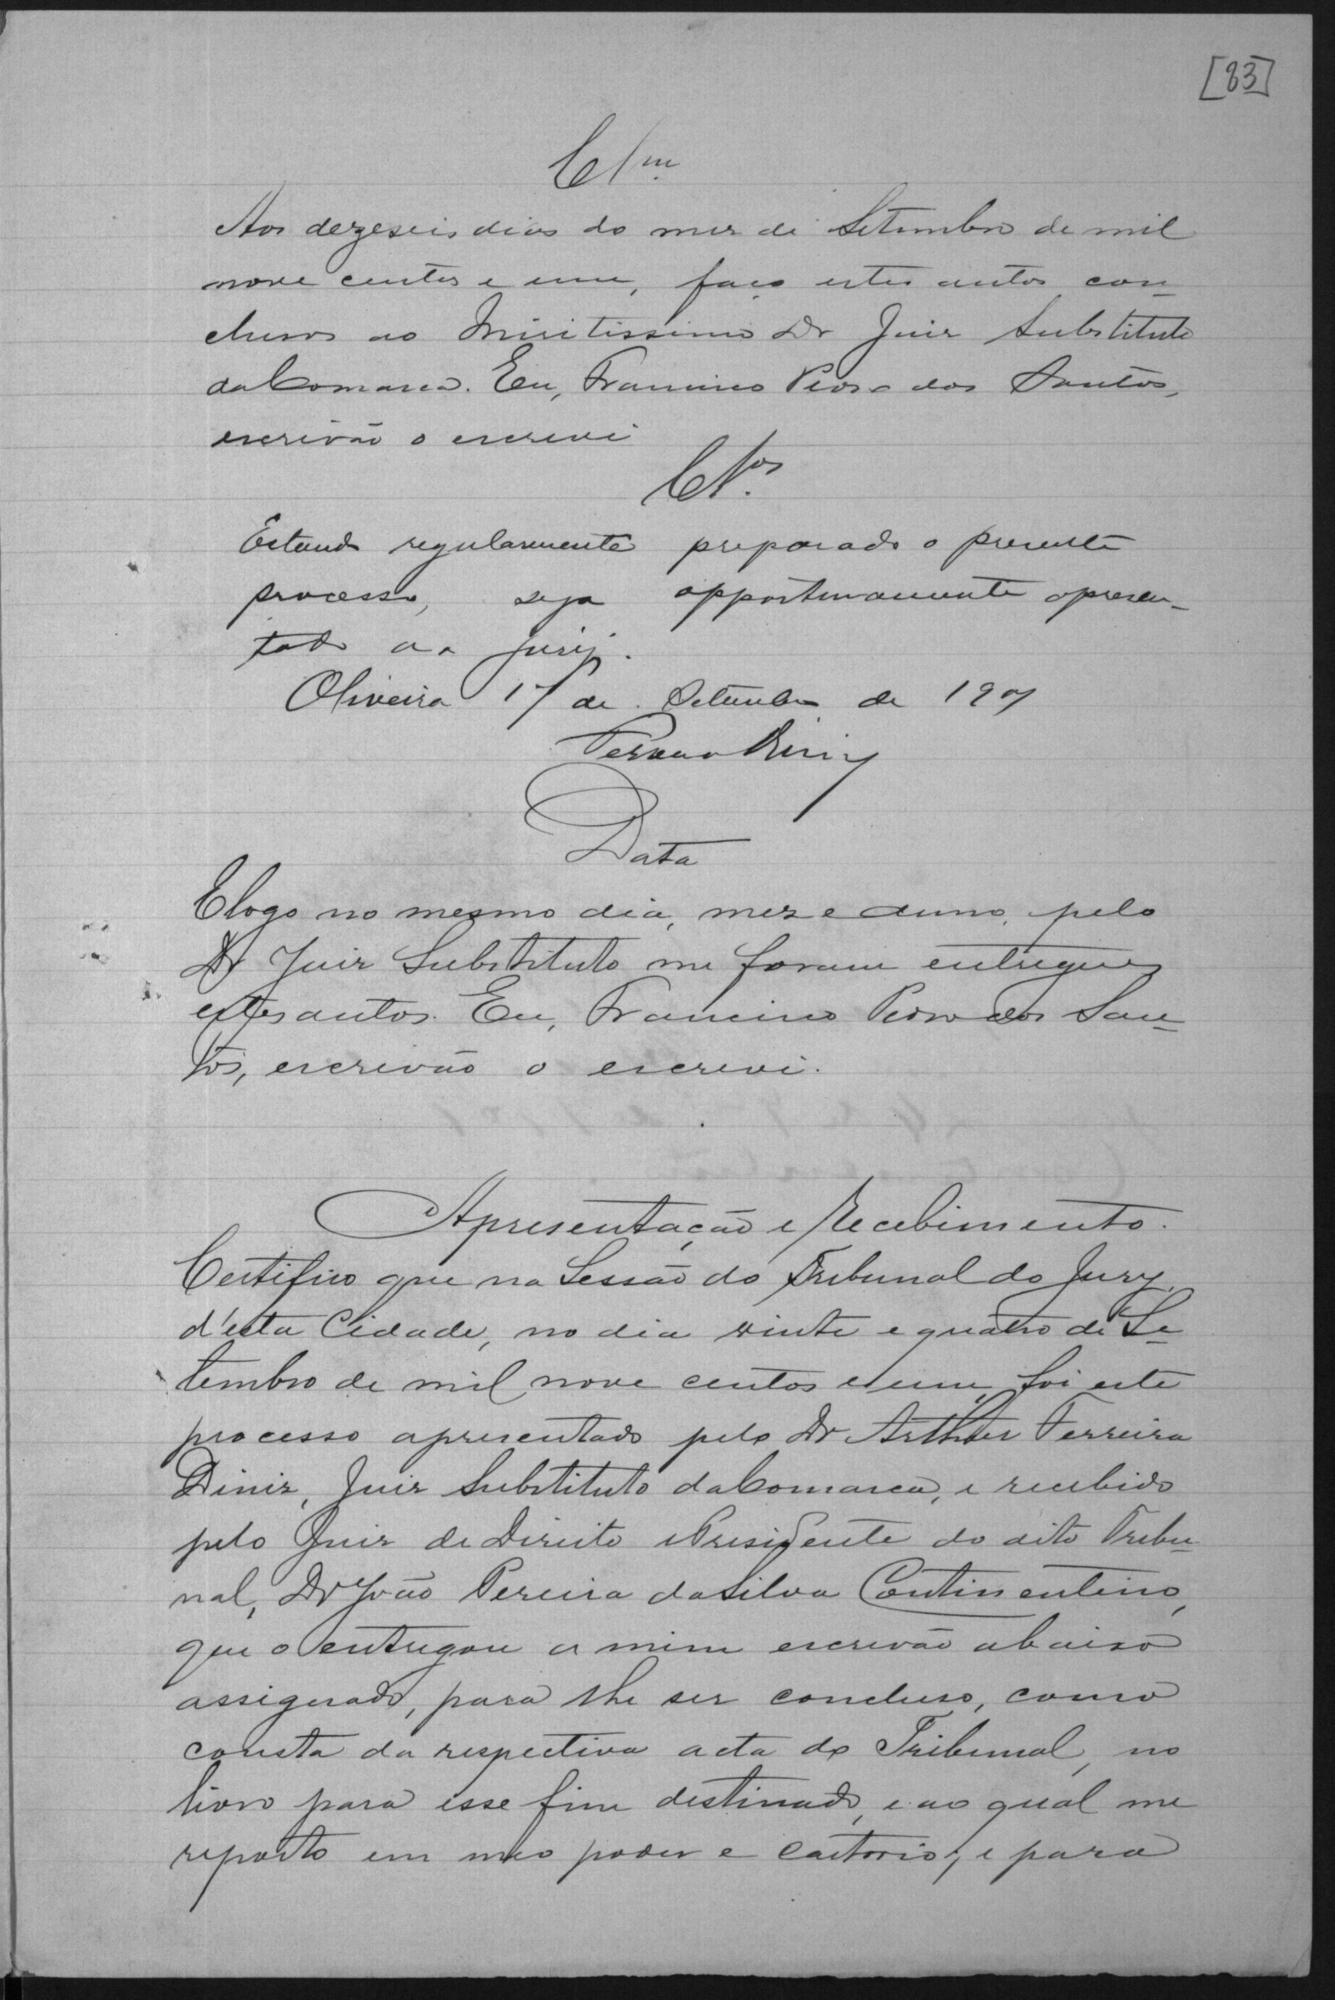 [83]
Cl.m
Aos dezeseis dias do mez de Setembro de mil
nove centos e um, faço estes autos con-
clusos ao Miritissimo Dr Juiz Substituto
da Comarca. Eu, Francisco Pedro dos Santos,
escrivão o escrevi
Cl.os
Estando regularmente preparado o presente
processo, seja opportunamente apresen-
tado ao jury.
Oliveira 17 de Setembro de 1901
Diniz
Data
E logo no mesmo dia, mez e anno, pelo
Dr Juiz Substituto me foram entregues
estes autos. Eu, Francisco Pedro dos San-
tos, escrivão o escrevi.
Apresentação e Recebimento.
Certifico que na Sessão do Tribunal do Jury,
d'esta Cidade, no dia vinte e quatro de Se-
tembro de mil nove centos e um, foi este
processo apresentado pelo Dr Arthur Ferreira
Diniz, Juiz Substituto da Comarca, e recebido
pelo Juiz de Direito e Presidente do dito Tribu-
nal, Dr João Pereira da Silva Continentino,
que o entregou a mim escrivão abaixo
assignado, para lhe ser concluso, como
consta da respectiva acta do Tribunal, no
livro para esse fim destinado, e ao qual me
reporto em meo poder e cartorio; e para